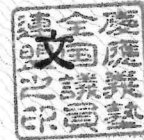 慶應義塾
全国議員
連盟之印
文